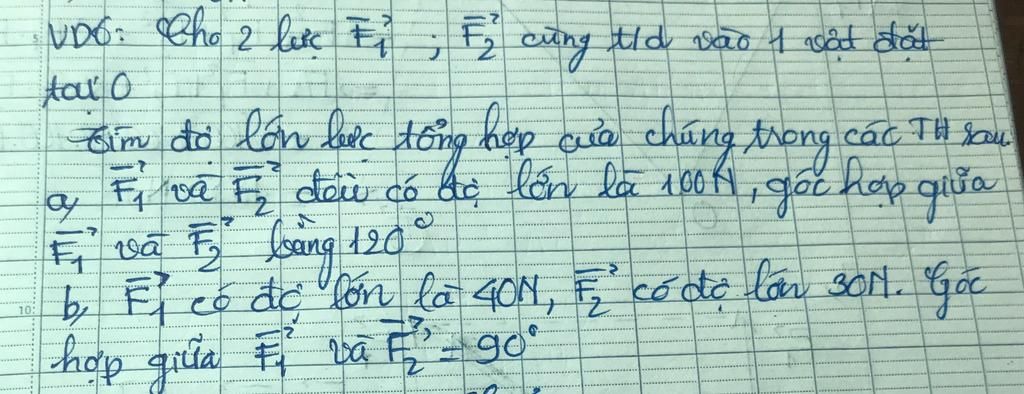 VD6: Cho 2 lực F₁⃗ ; F₂⃗ cùng t/d vào 1 vật đặt
tại O
Tìm độ lớn lực tổng hợp của chúng trong các TH sau.
a, F₁⃗ và F₂⃗ đều có độ lớn là 100N, góc hợp giữa
F₁⃗ và F₂⃗ bằng 120°
b, F₁⃗ có độ lớn là 40N, F₂⃗ có độ lớn 30N. Góc
hợp giữa F₁⃗ và F₂⃗ = 90°